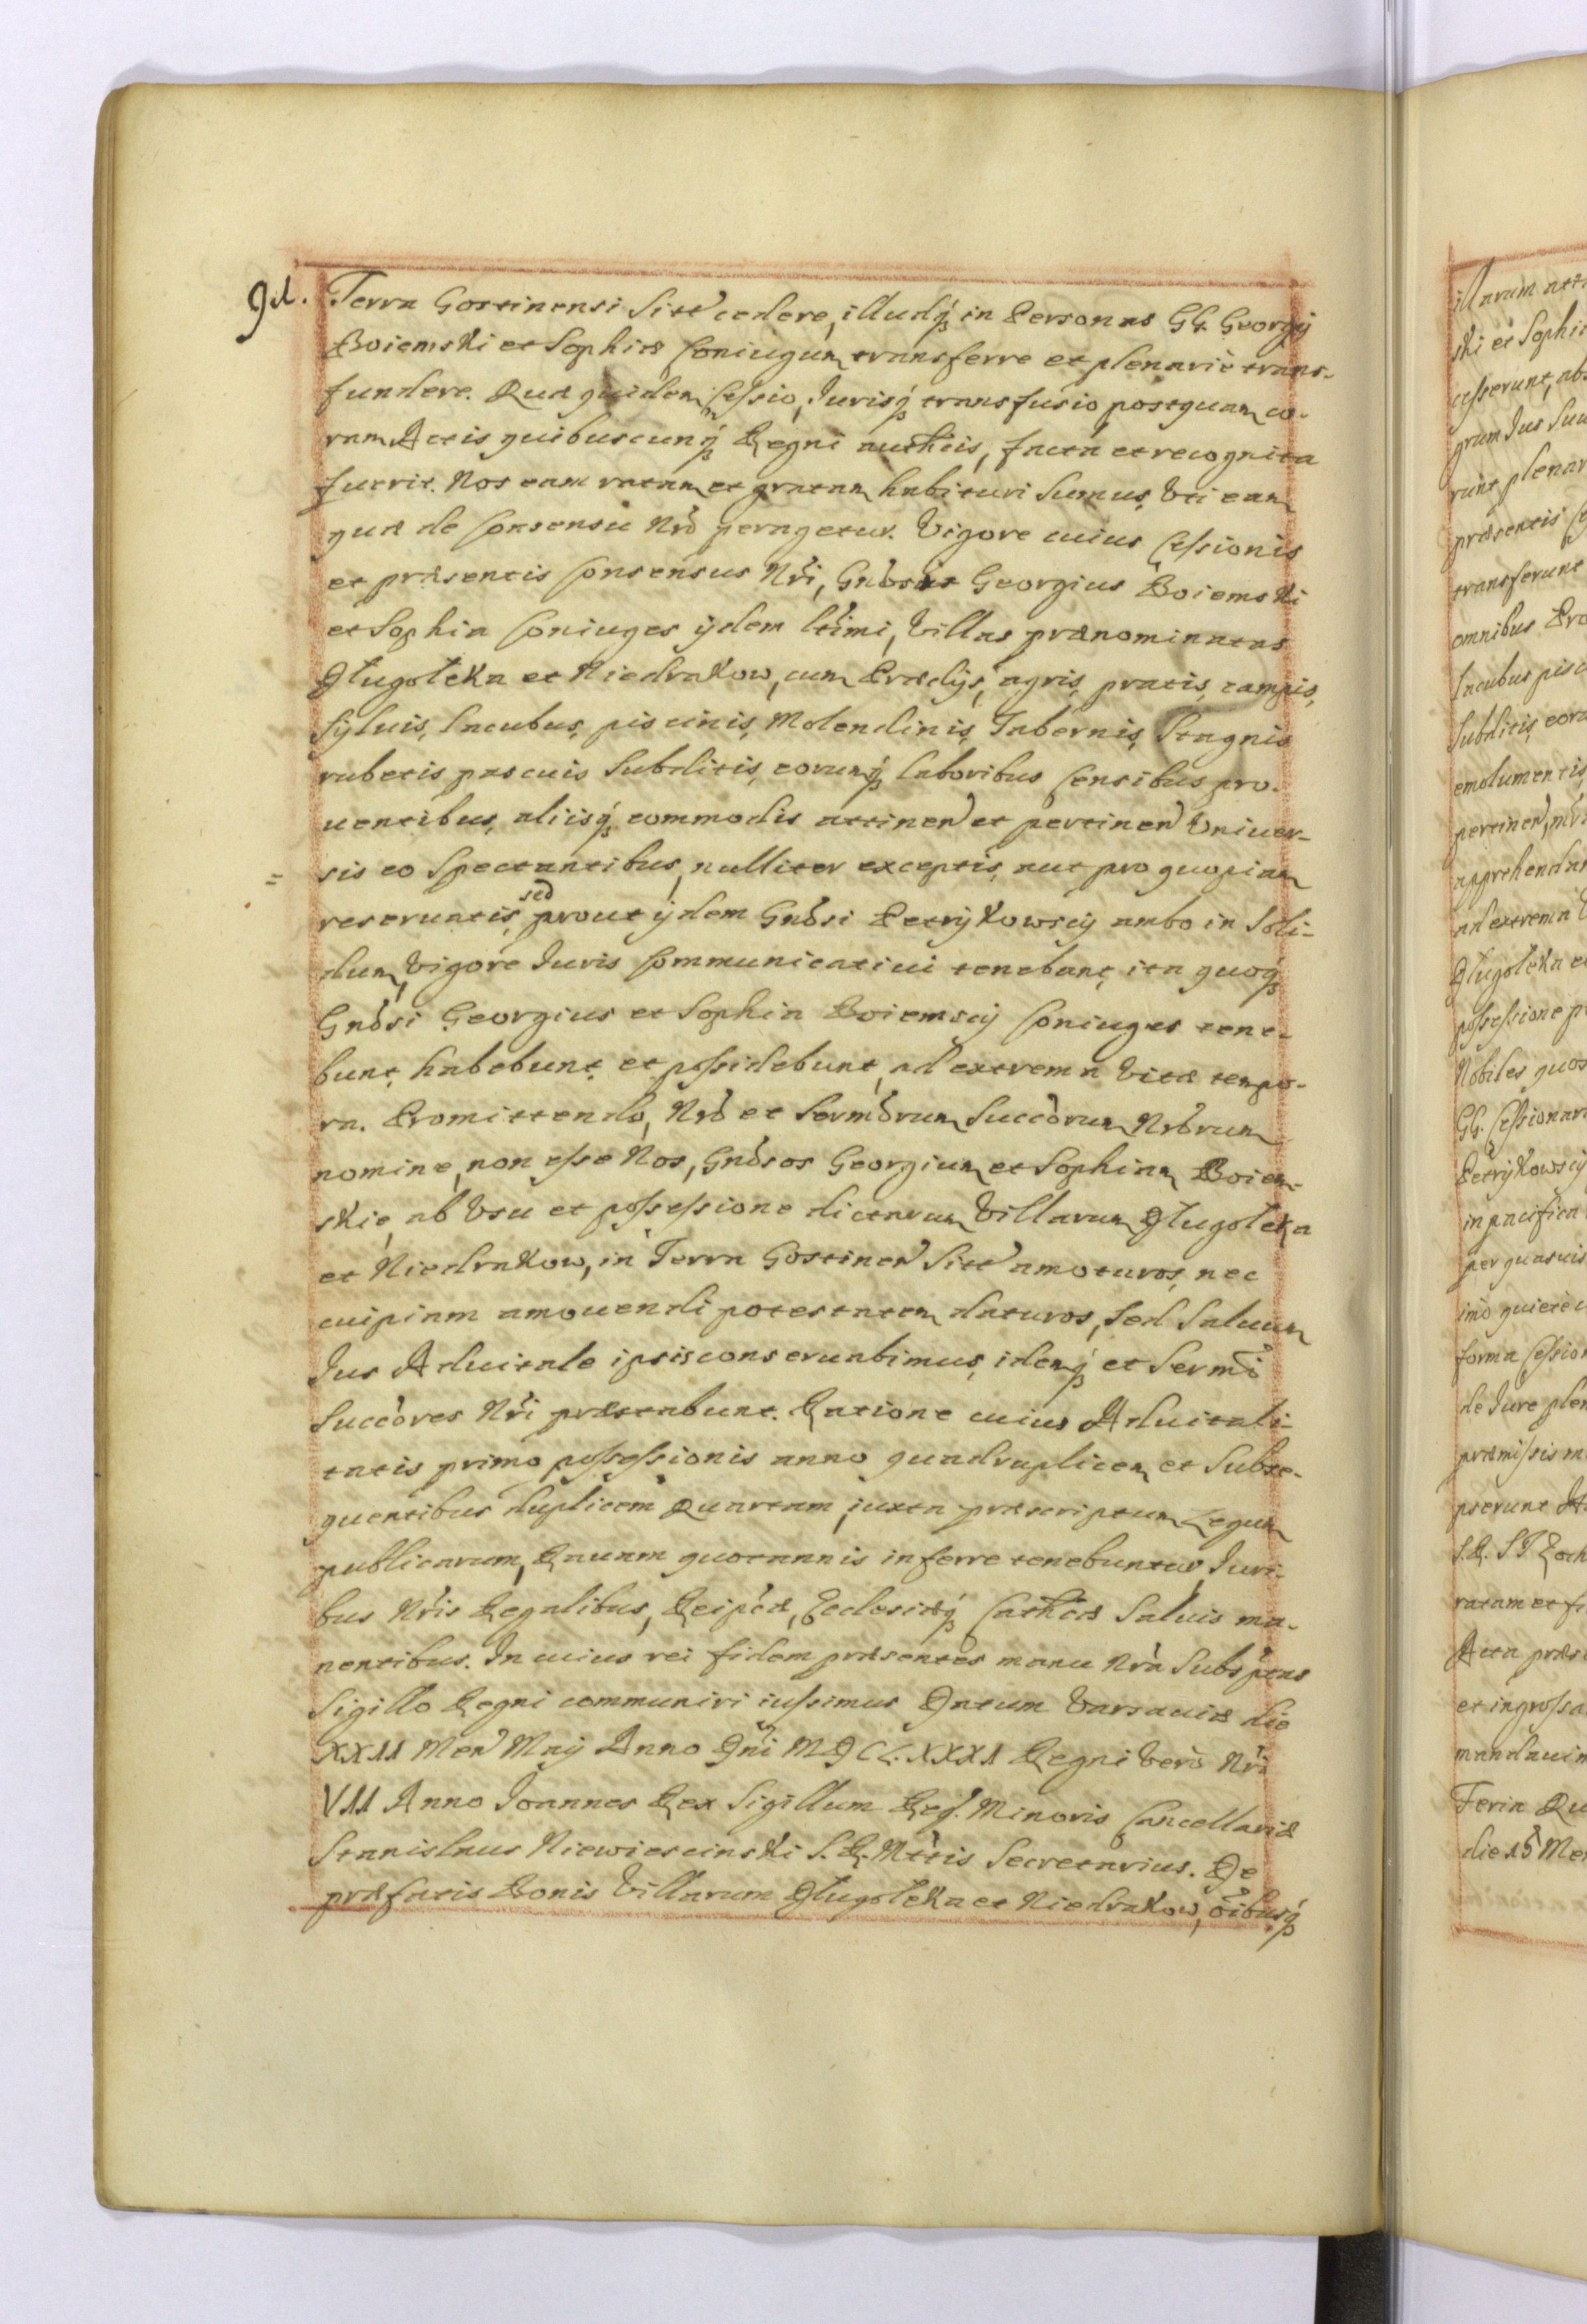 gd. Terra Gostinensi Sitt cedere, illudq; in Personas GG. Georgij
Boiemski et Sophiæ Coniugum transferre et plenariè trans-
fundere. Quæ quidem Cessio, Jurisq; transfusio postquam co-
ram Actis quibuscunq; Regni authcis, facta et recognita
fuerit. Nos eam ratam et gratam habituri sumus, Uti eam
quæ de Consensu Nrõ peragetur. Vigore cuius Cessionis
et præsentis Consensus Nri, Gnosus Georgius Boiemski
et Sophia Coniuges ijdem ltimi, Villas prænominatas
Długołeka et Niedrakow, cum Prædijs, agris, pratis, campis,
Syluis, Lacubus, piscinis, Molendinis, Tabernis, Stagnis
rubetis pascuis Subditis, eorumq; laboribus Censibus pro-
uentibus, aliisq; commodis attinen et pertinen Uniuer-
sis eo Spectantibus, nulliter exceptis, aut pro quopiam
reseruatis, sed prout ijdem Gnosi Petrykowscij ambo in Soli-
dum, Vigore Juris Communicatiui tenebant, ita quoq;
Gnosi Georgius et Sophia Boiemscij Coniuges tene-
bunt, habebunt, et possidebunt, ad extrema Vitæ tempo-
ra. Promittendo, Nro et Sermorum Succorum Nrorum
nomine, non esse Nos, Gnosos Georgium et Sophiam Boiem-
skie, ab Usu et possessione dictarum Villarum Długołeka
et Niedrakow, in Terra Gostinen Sitt amoturos, nec
cuipiam amouendi potestatem daturos, Sed Saluum
Jus Aduitale ipsis conseruabimus, idemq; et Sermi
Succores Nri præstabunt. Ratione cuius Aduitali-
tatis primo possessionis anno quadruplicem, et Subse-
quentibus duplicem Quartam, iuxta præscriptum Legum
publicarum, Rauam quotannis inferre tenebuntur Juri-
bus Nris Regalibus, Reipcæ, Ecclesiæq; Cathcæ Saluis ma-
nentibus. In cuius rei fidem præsentes manu Nra Subsptas
Sigillo Regni communiri iussimus Datum Varsauiæ die
XXII Men Maij Anno Dni MDCLXXXI Regni Vero Nri
VII Anno Joannes Rex Sigillum Reg. Minoris Cancellariæ
Stanislaus Niewiescinski S. R. Mttis Secretarius. De
præfatis Bonis Villarum Długołeka et Niedrakow, oibusq;